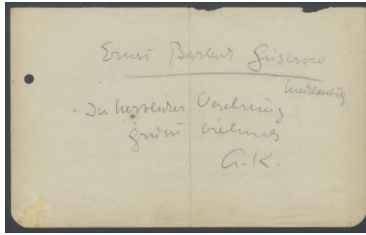 Ernst Barlach Güstrow
Mecklenburg
- In herzlicher Verehrung
grüsst vielmals
A. K.